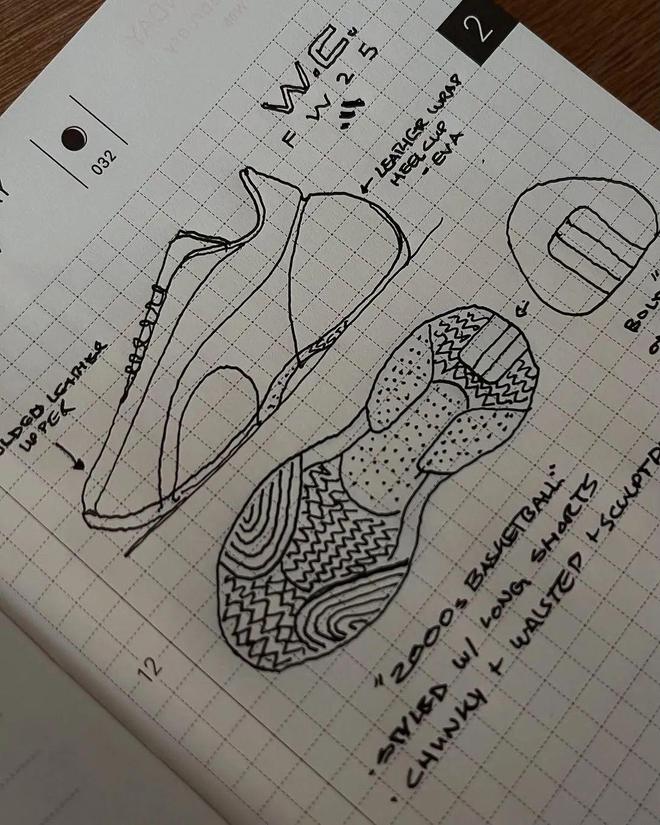 2
032
W.C.
FW25
LEATHER WRAP
HEEL CUP
- EVA
LEATHER
UPPER
12
"2000s BASKETBALL"
• STYLED W/ LONG SHORTS
• CHUNKY + WAISTED +